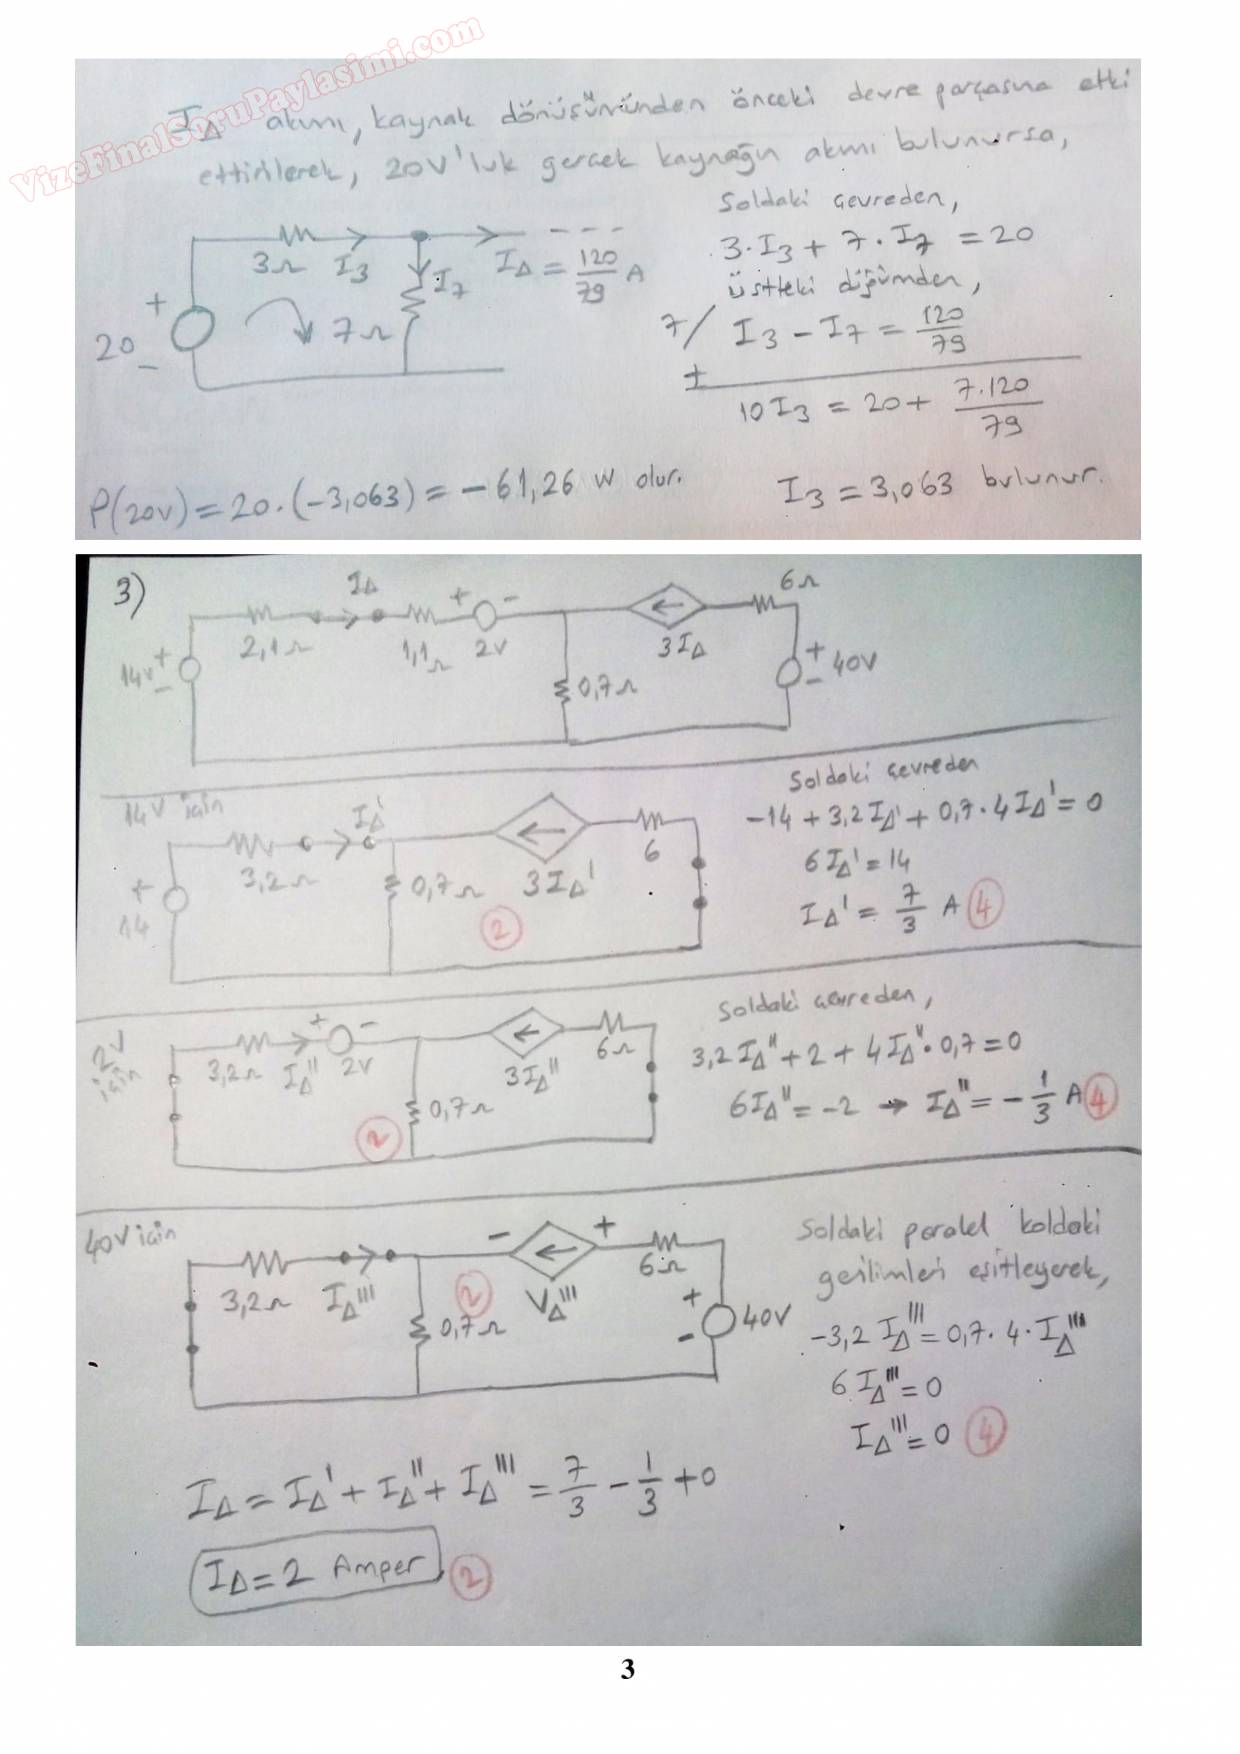 VizeFinalSoruPaylasimi.com
I∆ akımı, kaynak dönüşümünden önceki devre parçasına etki
ettirilerek, 20V'luk gerçek kaynağın akımı bulunursa,
Soldaki çevreden,
3·I3 + 7·I7 = 20
üstteki düğümden,
7/ I3 − I7 = 120/79
+
10I3 = 20 + 7.120/79
I3 = 3,063 bulunur.
3Ω I3 I7 I∆ = 120/79 A
+ 20 − 7Ω
P(20V) = 20·(−3,063) = −61,26 W olur.
3)
I∆ + − 6Ω
2,1Ω 1,1Ω 2V 3I∆
14V + − 0,7Ω + − 40V
14V için
I∆'
3,2Ω 0,7Ω 3I∆' 6
+ 14
2
Soldaki çevreden
−14 + 3,2I∆' + 0,7·4I∆' = 0
6I∆' = 14
I∆' = 7/3 A 4
2V için
+ −
3,2Ω I∆'' 2V 3I∆'' 6Ω
0,7Ω
2
Soldaki çevreden,
3,2I∆'' + 2 + 4I∆''·0,7 = 0
6I∆'' = −2 → I∆'' = −1/3 A 4
40V için
− +
3,2Ω I∆''' 2 V∆''' 6Ω
0,7Ω + − 40V
Soldaki paralel koldaki
gerilimleri eşitleyerek,
−3,2 I∆''' = 0,7·4·I∆'''
6I∆''' = 0
I∆''' = 0 4
I∆ = I∆' + I∆'' + I∆''' = 7/3 − 1/3 + 0
I∆ = 2 Amper 2
3